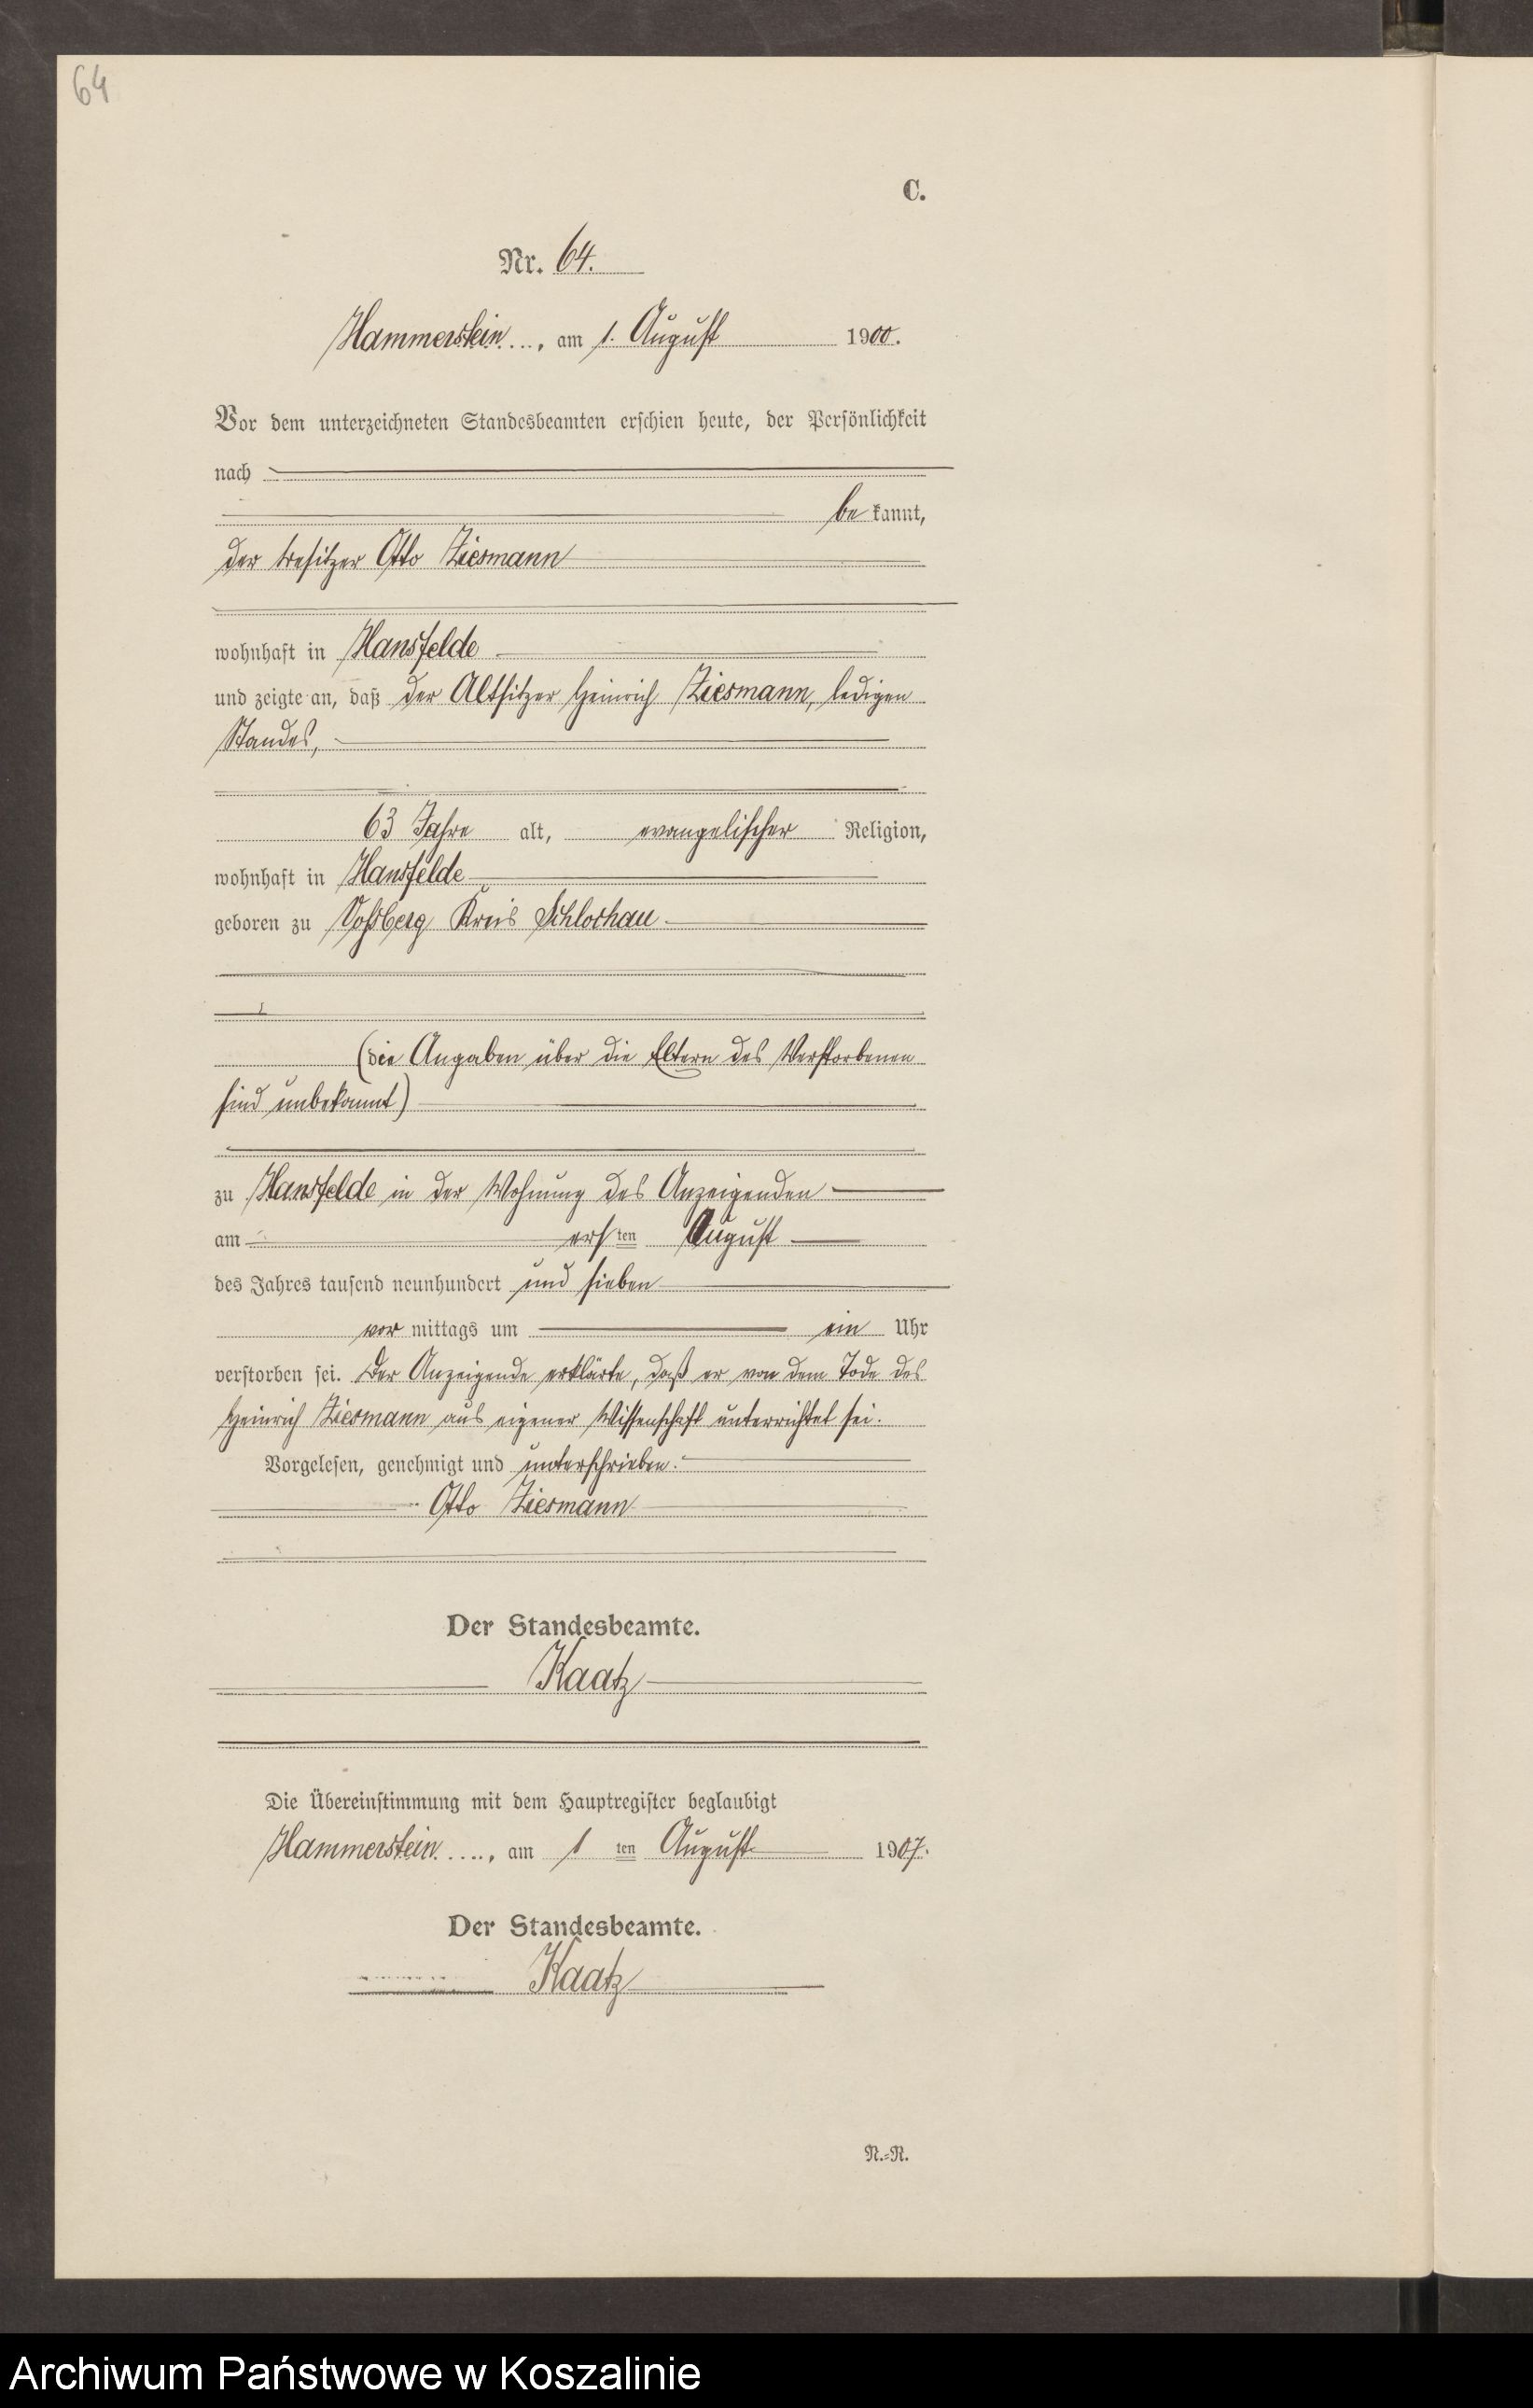 64
C.
Nr. 64.
Hammerstein..., am 1. August 1900.
Vor dem unterzeichneten Standesbeamten erschien heute, der Persönlichkeit
nach
be kannt,
der Besitzer Otto Ziesmann
wohnhaft in Hansfelde
und zeigte an, daß der Altsitzer Heinrich Ziesmann, ledigen
Standes,
63 Jahre alt, evangelischer Religion,
wohnhaft in Hansfelde
geboren zu Voßberg Kreis Schlochau
(die Angaben über die Eltern des Verstorbenen
sind unbekannt)
zu Hansfelde in der Wohnung des Anzeigenden
am ersten August
des Jahres tausend neunhundert und sieben
vor mittags um ein Uhr
verstorben sei. Der Anzeigende erklärte, daß er von dem Tode des
Heinrich Ziesmann aus eigener Wissenschaft unterrichtet sei.
Vorgelesen, genehmigt und unterschrieben.
Otto Ziesmann
Der Standesbeamte.
Kaatz
Die Übereinstimmung mit dem Hauptregister beglaubigt
Hammerstein...., am 1 ten August 1907.
Der Standesbeamte.
Kaatz
N.=R.
Archiwum Państwowe w Koszalinie